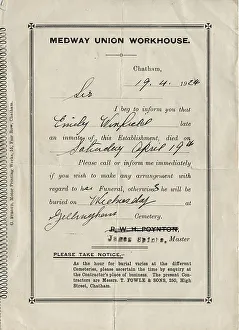 MEDWAY UNION WORKHOUSE.
Chatham,
19. 4. 1924
Sir
I beg to inform you that
Emily Winfield late
an inmate of this Establishment, died on
Saturday April 19th
Please call or inform me immediately
if you wish to make any arrangement with
regard to her Funeral, otherwise S he will
be buried on Wednesday at
Gillingham Cemetery.
R. W. H. POYNTON,
James Master
PLEASE TAKE NOTICE.-
As the hour for burial varies at the different
Cemeteries, please ascertain the time by enquiry at
the Contractor's place of business. The present Con-
tractors are Messrs. T. FOWLE & SONS, 350, High
Street, Chatham.